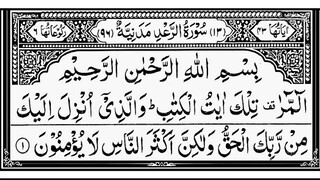 اٰيَاتُهَا ٤٣ (١٣) سُوْرَةُ الرَّعْدِ مَدَنِيَّةٌ (٩٦) رُكُوْعَاتُهَا ٦
بِسْمِ اللّٰهِ الرَّحْمٰنِ الرَّحِيْمِ
الٓمّٓرٰ ۫ تِلْكَ اٰيٰتُ الْكِتٰبِ ؕ وَالَّذِيْۤ اُنْزِلَ اِلَيْكَ
مِنْ رَّبِّكَ الْحَقُّ وَلٰكِنَّ اَكْثَرَ النَّاسِ لَا يُؤْمِنُوْنَ ۝١